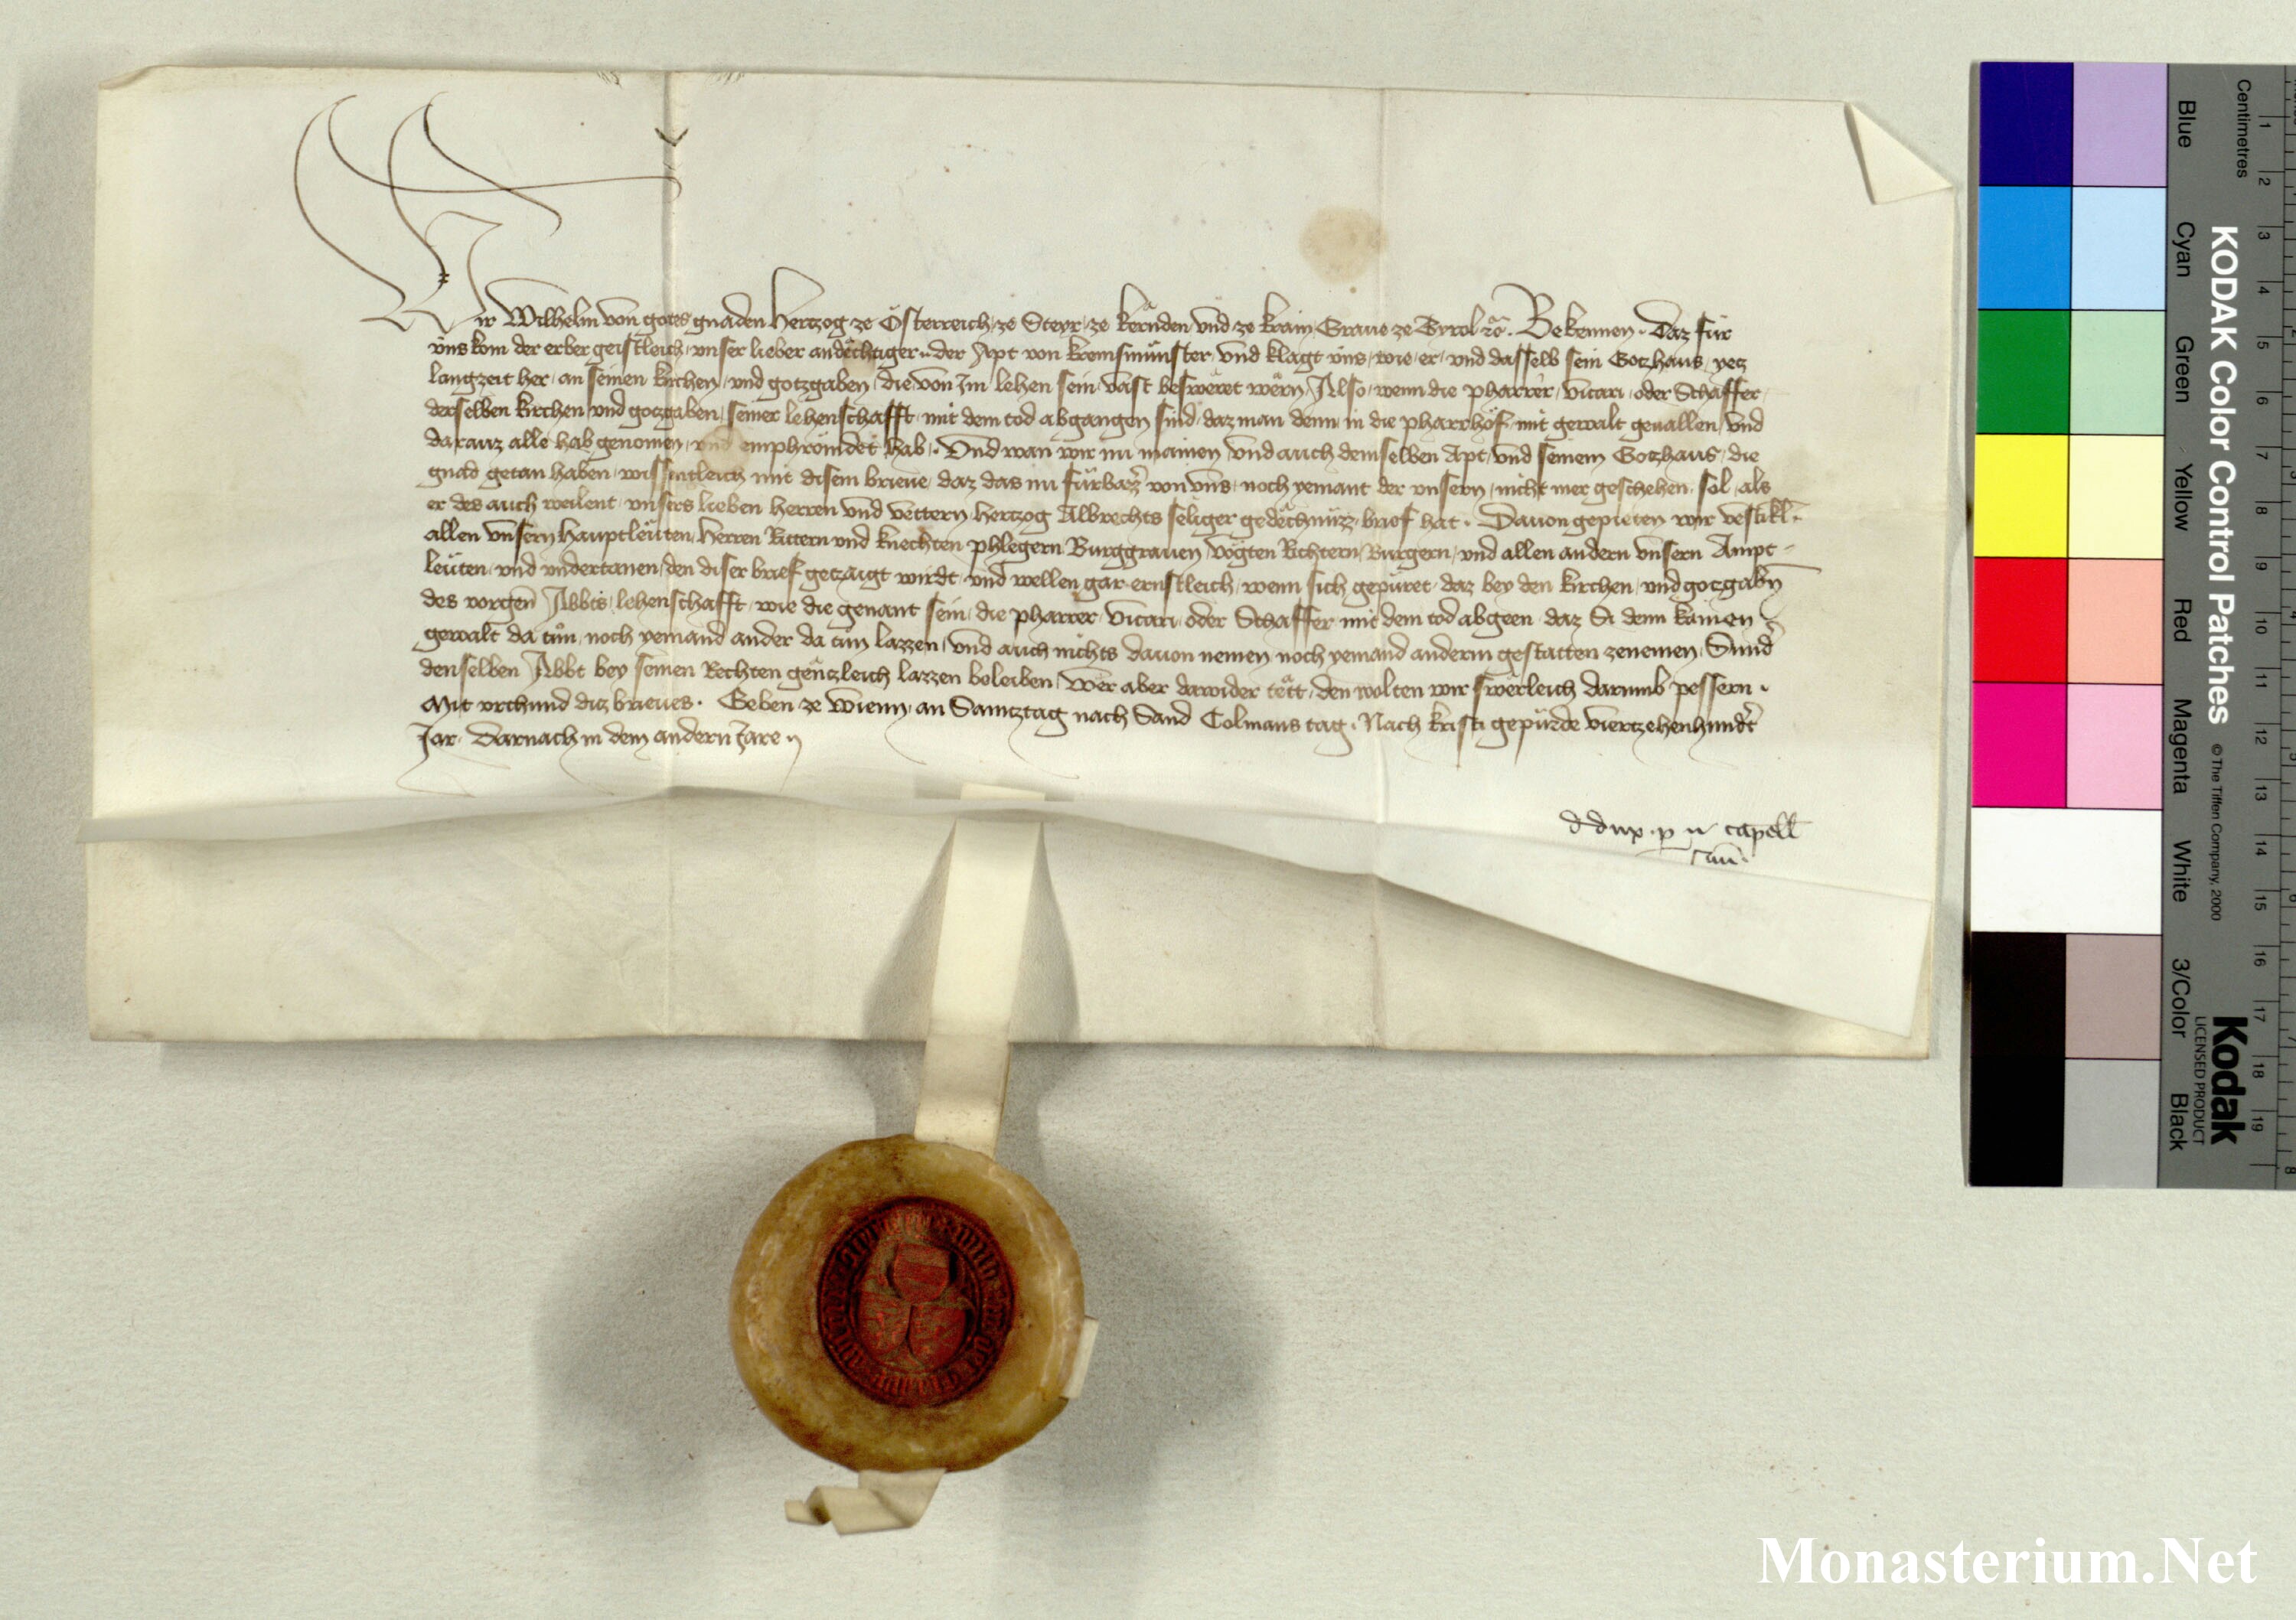 Wir Wilhelm von gotes gnaden Hertzog ze Österreich ze Steyr ze kernden vnd ze krain Graue ze Tyrol etc. Bekennen. Daz für
vns kom der erber geistleich vnser lieber andechtiger .. der Apt von kremsmünster vnd klagt vns, wie er vnd dasselb sein Gotzhaus yetz
langzeit her an seinen kirchen vnd gotzgaben, die von Im lehen sein, vast beswëret wërn, Also, wenn die pharrer, vicari oder Schaffer
derselben kirchen vnd gotzgaben seiner lehenschafft mit dem tod abgangen sind, daz man denn in die pharrhöf mit gewalt geuallen, vnd
darauz alle hab genomen vnd emphrömdet hab. Vnd wan wir nu mainen vnd auch demselben Apt, vnd seinem Gotzhaus die
gnad getan haben wissentleich mit disem brieue, daz das nu fürbazz von vns, noch yemant der vnsern, nicht mer geschehen sol, als
er des auch weilent vnsers lieben herren vnd vettern hertzog Albrechts seliger gedëchtnüzz brief hat. Dauon gepieten wir vestikl.
allen vnsern hauptleüten, herren Rittern vnd knechten phlegern Burggrauen, vögten Richtern, Burgern, vnd allen andern vnsern Ampt-
leüten vnd vndertanen, den diser brief getzaigt wirdt vnd wellen gar ernstleich, wenn sich gepüret, daz bey den kirchen, vnd gotzgabn
des vorgen Abbts lehenschafft, wie die genant sein, die pharrer, vicari, oder Schaffer mit dem tod abgeen, daz Si denn kainen
gewalt da tun, noch yemand ander da tun lazzen, vnd auch nichts dauon nemen noch yemand anderm gestatten zenemen, Sund
denselben Abbt bey seinen Rechten gentzleich lazzen beleiben, Wer aber dawider tett, den wolten wir swerleich darumb pessern.
Mit vrchund ditz brieues. Geben ze Wienn, an Samtztag nach Sand Colmans tag. Nach kristi gepürde viertzehenhundt
Jar. Darnach in dem andern Jare
d dux p capell
Centimetres
Blue Cyan Green Yellow Red Magenta White 3/Color Black
KODAK Color Control Patches
© The Tiffen Company, 2000
Kodak
LICENSED PRODUCT
1 2 3 4 5 6 7 8 9 10 11 12 13 14 15 16 17 18 19
Monasterium.Net